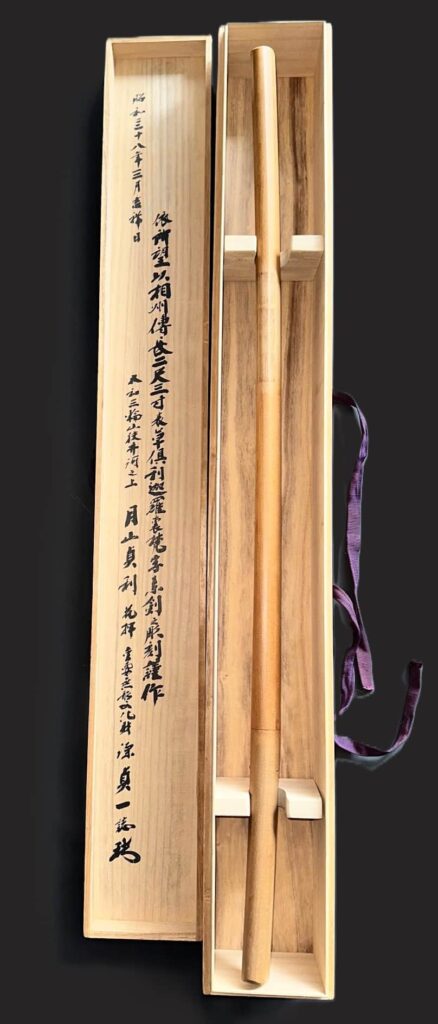 依所望以相州傳長二尺三寸表草倶利迦羅裏梵字素劍之彫刻謹作
大和三輪山狭井河之上 月山貞利 花押 重要無形文化財 源貞一誌
昭和五十八年三月吉祥日